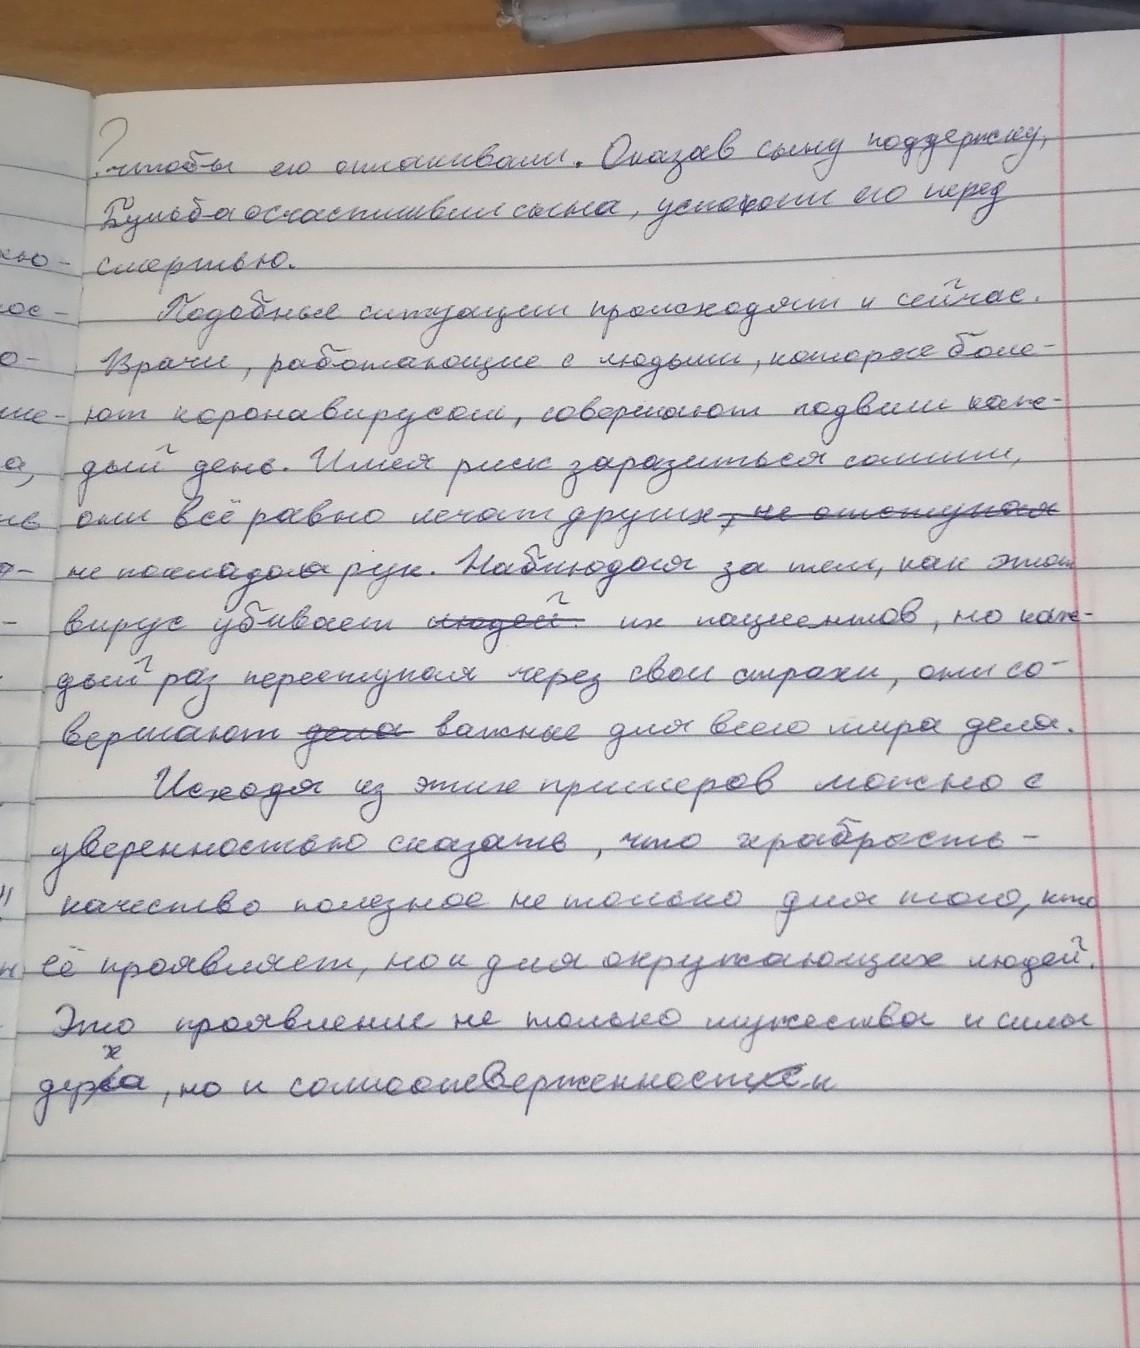 ?
чтобы его оплакивали. Оказав сыну поддержку,
Бульба осчастливил сына, успокоил его перед
смертью.
Подобные ситуации происходят и сейчас.
Врачи, работающие с людьми, которые боле-
ют коронавирусом, совершают подвиги каж-
дый день. Имея риск заразиться самими,
они всё равно лечат других, не отступая
не покладая рук. Наблюдая за тем, как этот
вирус убивает людей. их пациентов, но каж-
дый раз переступая через свои страхи, они со-
вершают дела важные для всего мира дела.
Исходя из этих примеров можно с
уверенностью сказать, что храбрость -
качество полезное не только для того, кто
её проявляет, но и для окружающих людей.
Это проявление не только мужества и силы
духа, но и самоотверженности